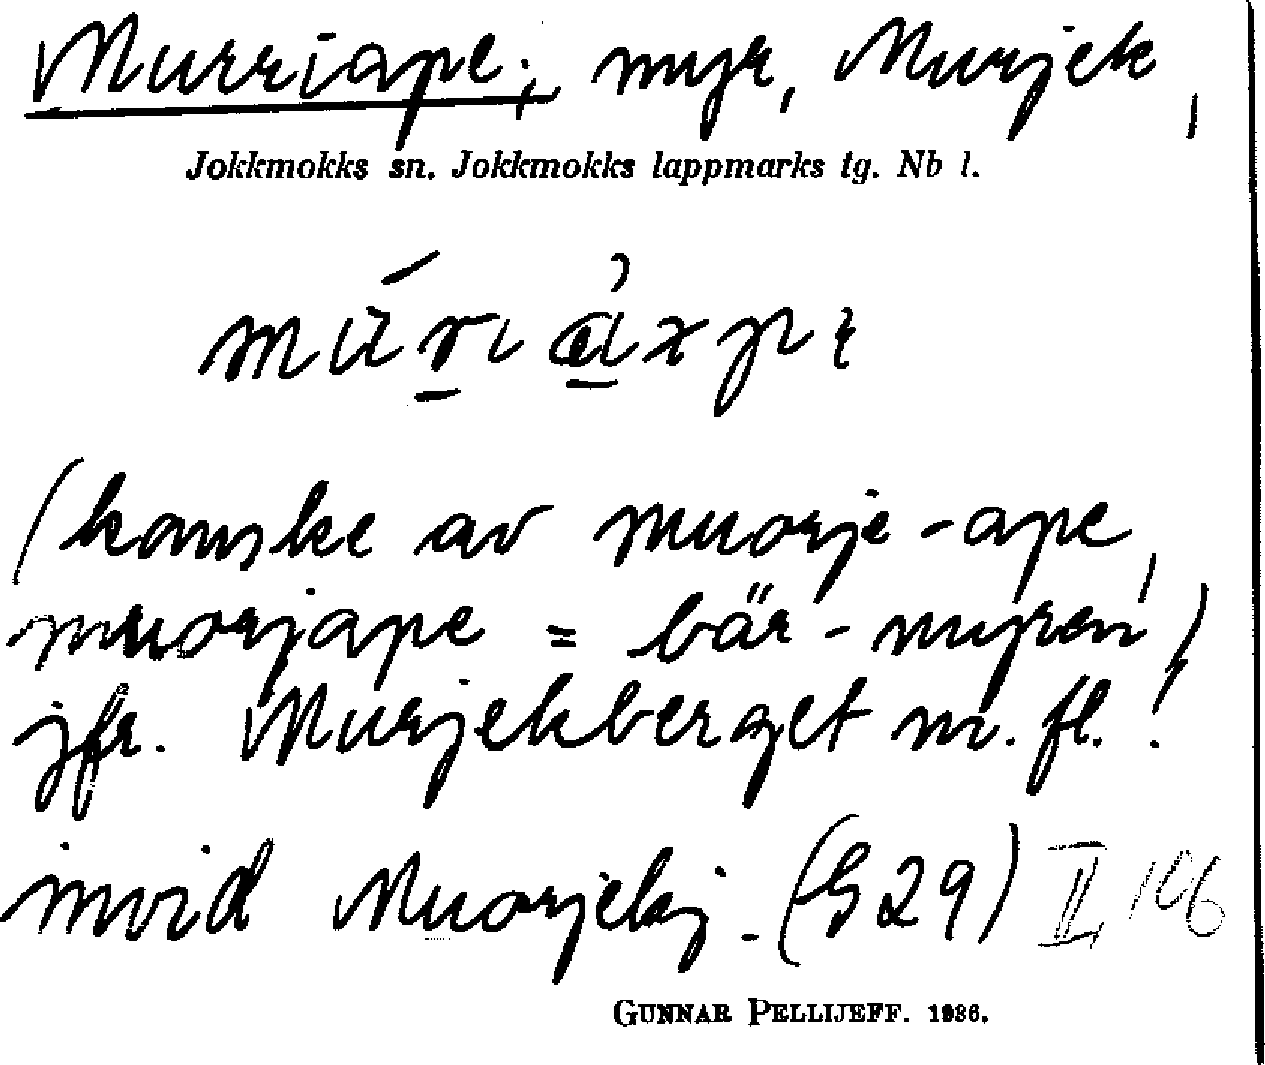 Murriape; myr, Murjek,
Jokkmokks sn. Jokkmokks lappmarks tg. Nb l.
(kanske av muorje-ape,
muorjape = bär-myren)
jfr. Murjekberget m. fl.!
invid Muorjekj. (G 29) II, 196
GUNNAR PELLIJEFF. 1936.